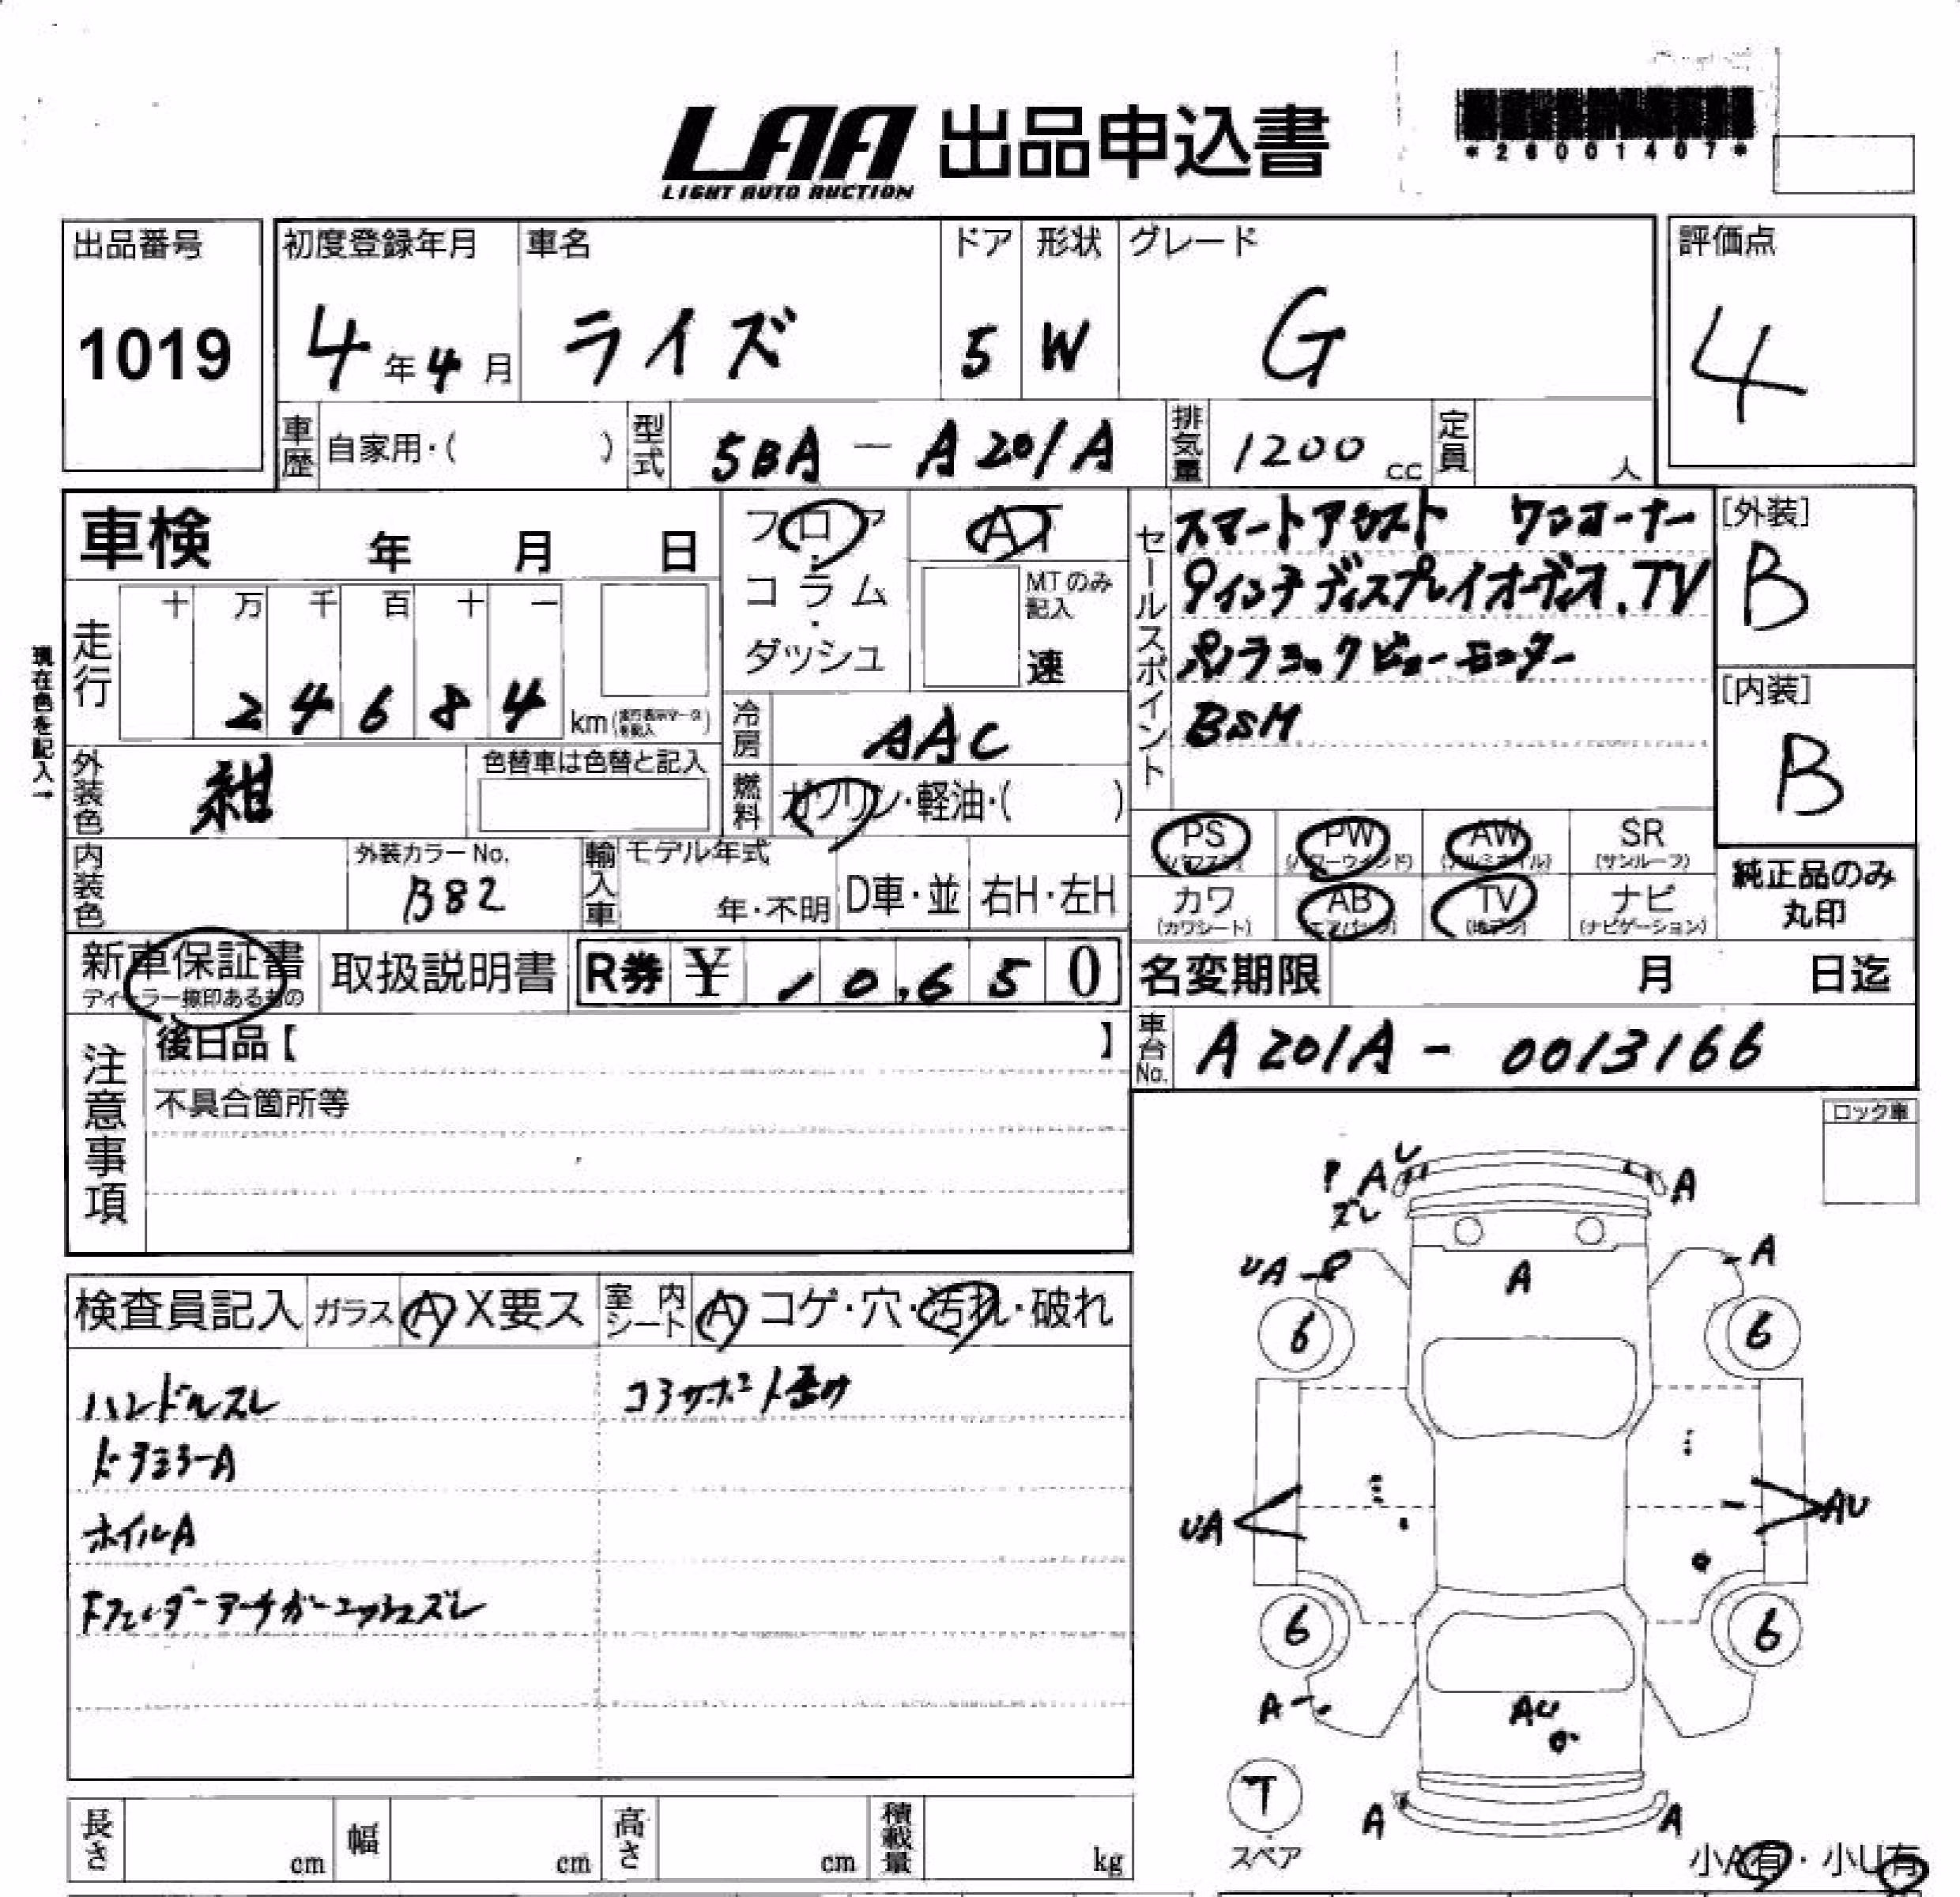 LAA 出品申込書
LIGHT AUTO AUCTION
*26001407*
出品番号 初度登録年月 車名 ドア 形状 グレード 評価点
1019 4年4月 ライズ 5 W G 4
車歴 自家用・( ) 型式 5BA-A201A 排気量 1200cc 定員 人
車検 年 月 日
フロア・コラム・ダッシュ
AT
MTのみ記入
速
セールスポイント
スマートアシスト ワンオーナー
9インチディスプレイオーディオ.TV
パノラミックビューモニター
BSM
[外装]
B
[内装]
B
現在色を記入→
走行 十 万 千 百 十 一
24684 km
冷房 AAC
外装色 紺 色替車は色替と記入
燃料 ガソリン・軽油・( )
内装色 外装カラーNo. B82
輸入車 モデル年式 年・不明 D車・並 右H・左H
PS (パワステ) PW (パワーウインド) AW (アルミホイル) SR (サンルーフ)
カワ (カワシート) AB (エアバック) TV (地デジ) ナビ (ナビゲーション)
純正品のみ
丸印
新車保証書 取扱説明書 R券 ¥ 10,650
ディーラー捺印あるもの
名変期限 月 日迄
車台No. A201A-0013166
注意事項
後日品【 】
不具合箇所等
ロック車
検査員記入 ガラス A X要ス 室内シート A コゲ・穴・汚れ・破れ
ハンドルスレ
ドアミラーA
ホイルA
Fフェンダーアーチガーニッシュズレ
P A
ズレ
A
UA
A
A
6 6
UA
AU
6 6
A
AU
T
スペア
A
A
小A有・小U有
長さ cm 幅 cm 高さ cm 積載量 kg